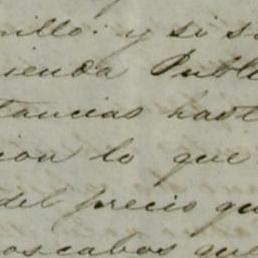 nillo: y si s
ienda Publi
tancias hast
cion lo que
del precio qu
oscabos que